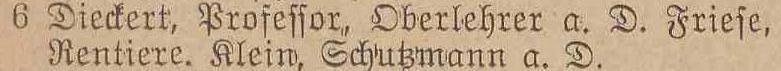 6 Dieckert, Professor, Oberlehrer a. D. Friese,
Rentiere. Klein, Schutzmann a. D.